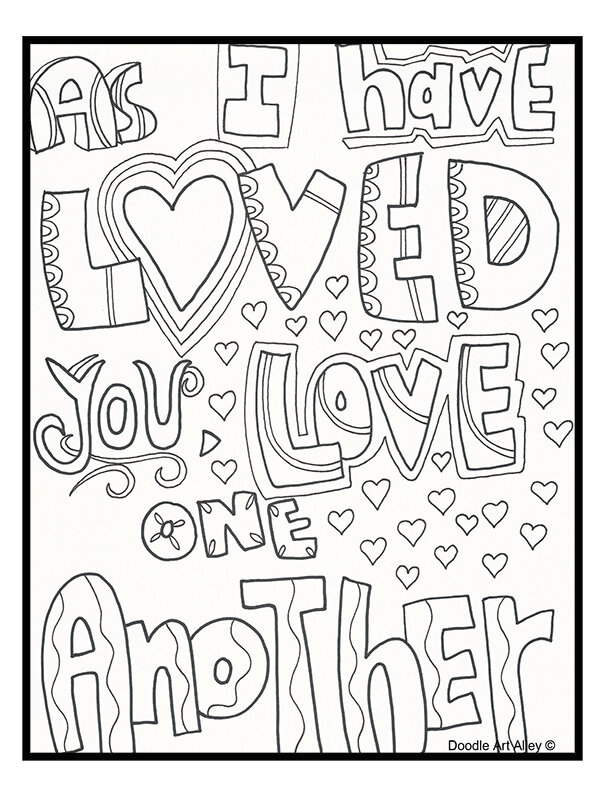 As I have
LOVED
YOU, LOVE
ONE
AnoTher
Doodle Art Alley ©